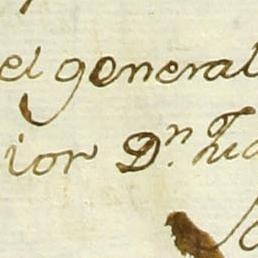 el general
ior Dn.